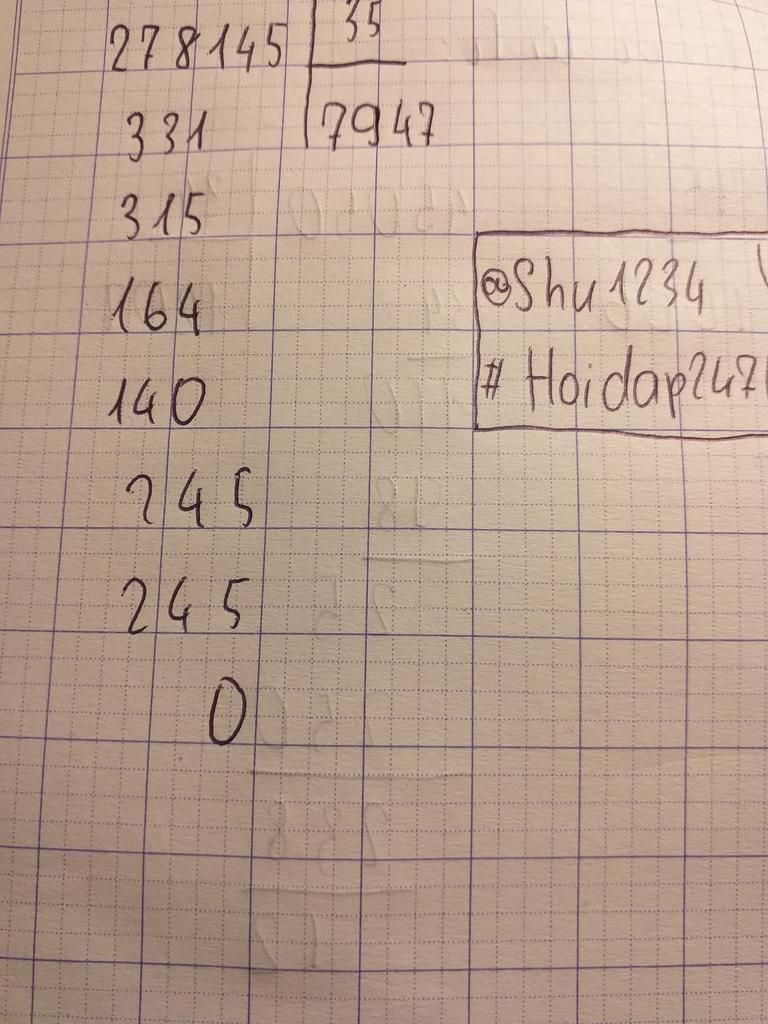 278145 35
331 7947
315
@Shu1234
164
# Hoidap247
140
245
245
0